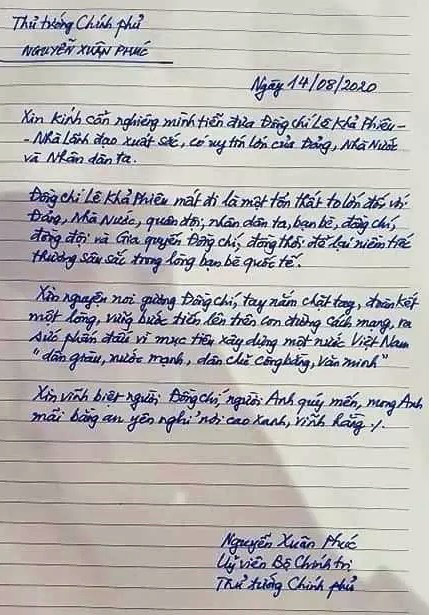 Thủ tướng Chính phủ
NGUYỄN XUÂN PHÚC
Ngày 14/08/2020
Xin kính cẩn nghiêng mình tiễn đưa Đồng chí Lê Khả Phiêu -
- Nhà lãnh đạo xuất sắc, có uy tín lớn của Đảng, Nhà Nước
và Nhân dân ta.
Đồng chí Lê Khả Phiêu mất đi là một tổn thất to lớn đối với
Đảng, Nhà Nước, quân đội, nhân dân ta, bạn bè, đồng chí,
đồng đội và Gia quyến Đồng chí, đồng thời để lại niềm tiếc
thương sâu sắc trong lòng bạn bè quốc tế.
Xin nguyện noi gương Đồng chí, tay nắm chặt tay, đoàn kết
một lòng, vững bước tiến lên trên con đường cách mạng, ra
sức phấn đấu vì mục tiêu xây dựng một nước Việt Nam
"dân giàu, nước mạnh, dân chủ công bằng, văn minh"
Xin vĩnh biệt người Đồng chí, người Anh quý mến, mong Anh
mãi bằng an yên nghỉ nơi cao xanh, vĩnh hằng ./.
Nguyễn Xuân Phúc
Uỷ viên Bộ Chính trị
Thủ tướng Chính phủ